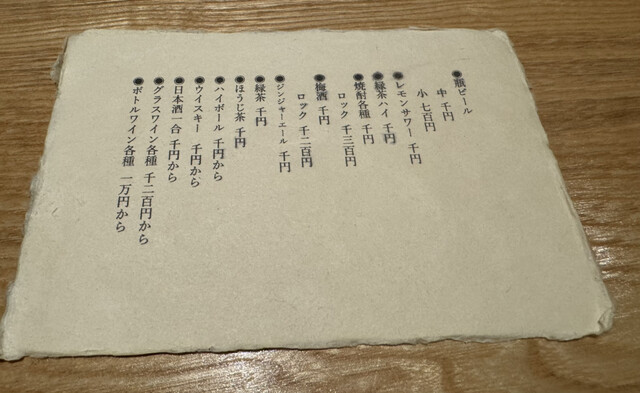 ●瓶ビール
中 千円
小 七百円
●レモンサワー 千円
●緑茶ハイ 千円
●焼酎各種 千円
ロック 千三百円
●梅酒 千円
ロック 千二百円
●ジンジャーエール 千円
●緑茶 千円
●ほうじ茶 千円
●ハイボール 千円から
●ウイスキー 千円から
●日本酒一合 千円から
●グラスワイン各種 千二百円から
●ボトルワイン各種 一万円から